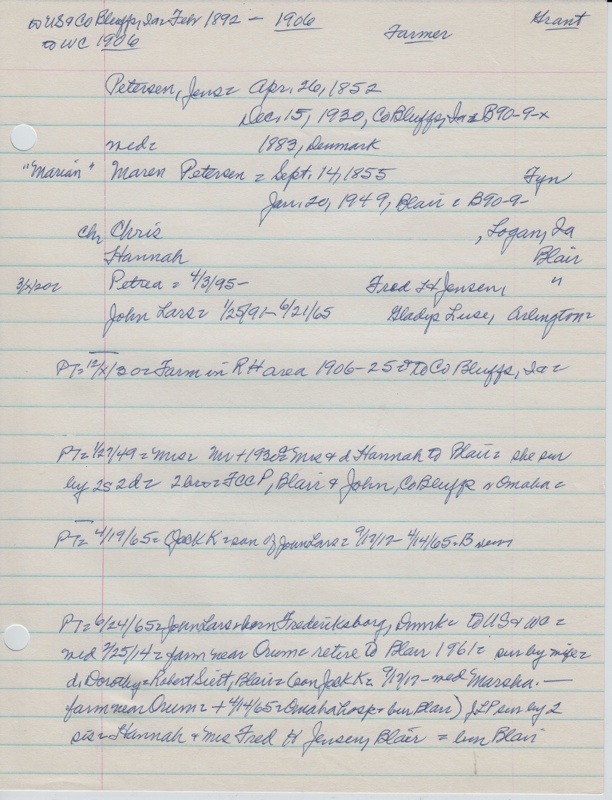 to US & Co Bluffs, Ia = Feb 1892 - 1906 Grant
to WC 1906 Farmer
Petersen, Jens = Apr. 26, 1852
Dec. 15, 1930, Co Bluffs, Ia = B90-9-x
med = 1883, Denmark
"Marian" Maren Petersen = Sept. 14, 1855 Fyn
Jan. 20, 1949, Blair = B90-9-
Chr Chris , Logan, Ia
Hannah Blair
Petrea = 4/3/95- Fred H Jensen, "
John Lars = 1/25/91 - 6/21/65 Gladys Luse, Arlington =
PT = 12/x/30 = Farm in RH area 1906-25 & to Co Bluffs, Ia =
PT = 1/27/49 = Mrs = Mr + 1930 = Mrs & d Hannah to Blair = she sur
by 2s 2d = 2 bro = FCCP, Blair & John, Co Bluffs & Omaha =
PT = 4/19/65 = Jack K = son of John Lars = 9/17/17 - 4/14/65 = B
PT = 6/24/65 = John Lars = born Fredericksborg, Dnmk = to US & WC =
med 2/25/14 = farm near Orum = retire to Blair 1961 = sur by wife =
d, Dorothy = Robert Siert, Blair = (son Jack K = 9/17/17 - med Marsha. —
farm near Orum = + 4/14/65 = Omaha hosp & bur Blair) JLP sur by 2
sis = Hannah & Mrs Fred H Jensen, Blair = bur Blair